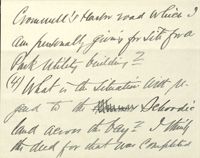 Cromwell's Harbor road which I
am personally giving for site for a
Park Utility building?
(4) What is the situation with re-
gard to the Schoodic
land across the bay? I think
the deed for that was completed